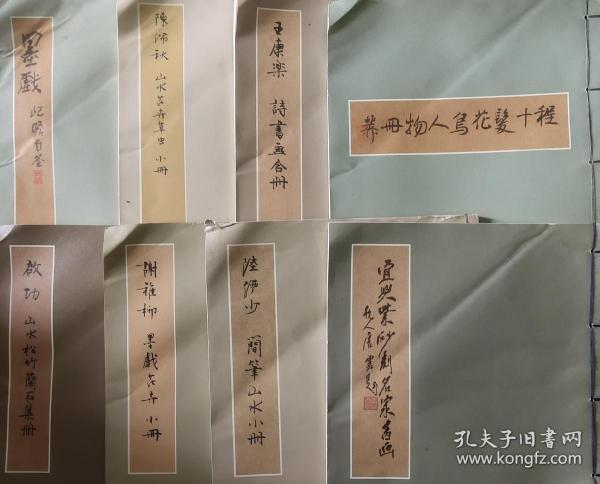 墨戲 屺瞻自签
陳佩秋 山水花卉草虫小冊
王康樂 詩書画合冊
程十髮花鳥人物冊
啟功 山水松竹蘭石集冊
謝稚柳 墨戲花卉小冊
陸伊少 簡筆山水小冊
宜興紫砂刻名家書画
孔夫子旧书网
www.kongfz.com